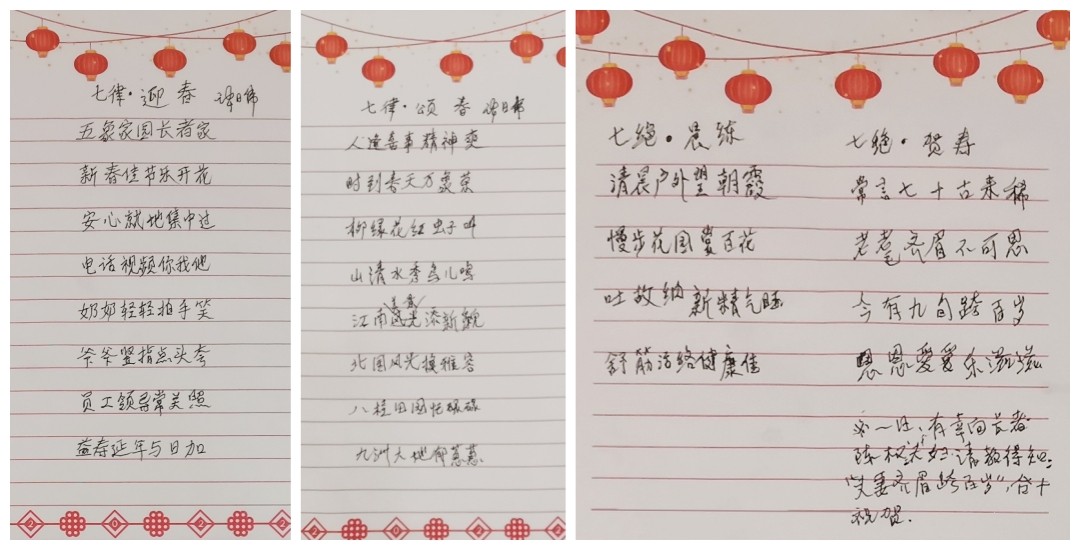 七律·迎春 谭日伟
五象家园长者家
新春佳节乐开花
安心就地集中过
电话视频你我他
奶奶轻轻拍手笑
爷爷竖指点头夸
员工领导常关照
益寿延年与日加
2 0 2 2
七律·颂春
人逢喜事精神爽
时到春天万象荣
柳绿花红虫子叫
山清水秀鸟儿鸣
江南 添新貌
北国风光换雅容
八桂田园忙碌碌
九洲大地郁葱葱
2 0 2
七绝·晨练
清晨户外望朝霞
慢步花园赏百花
吐故纳新精气旺
舒筋活络健康佳
七绝·贺寿
常言七十古来稀
老耄齐眉不可思
今有九旬跨百岁
恩恩爱爱乐滋滋
注:有幸向长者
陈 夫妇请教得知:
"夫妻齐眉跨百岁",
祝贺.